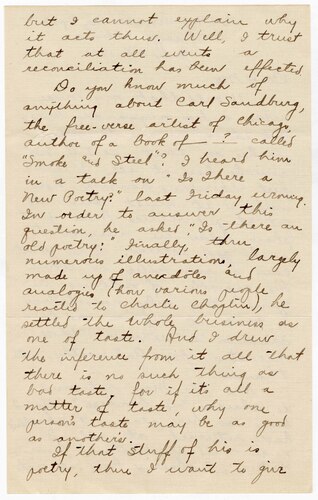 but I cannot explain why
it acts thus. Well, I trust
that at all events a
reconciliation has been effected
Do you know much of
anything about Carl Sandburg,
the free-verse artist of Chicago,
author of a book of — ? called
"Smoke and Steel"? I heard him
in a talk on "Is There a
New Poetry?" last Friday evening.
In order to answer this
question, he asked "Is there an
old poetry?" Finally, thru
numerous illustrations, largely
made up of anecdotes and
analogies (how various people
reacted to Charlie Chaplin), he
settled the whole business as
one of taste. And I drew
the inference from it all that
there is no such thing as
bad taste, for if its all a
matter of taste, why one
person's taste may be as good
as another's.
If that stuff of his is
poetry, then I want to give